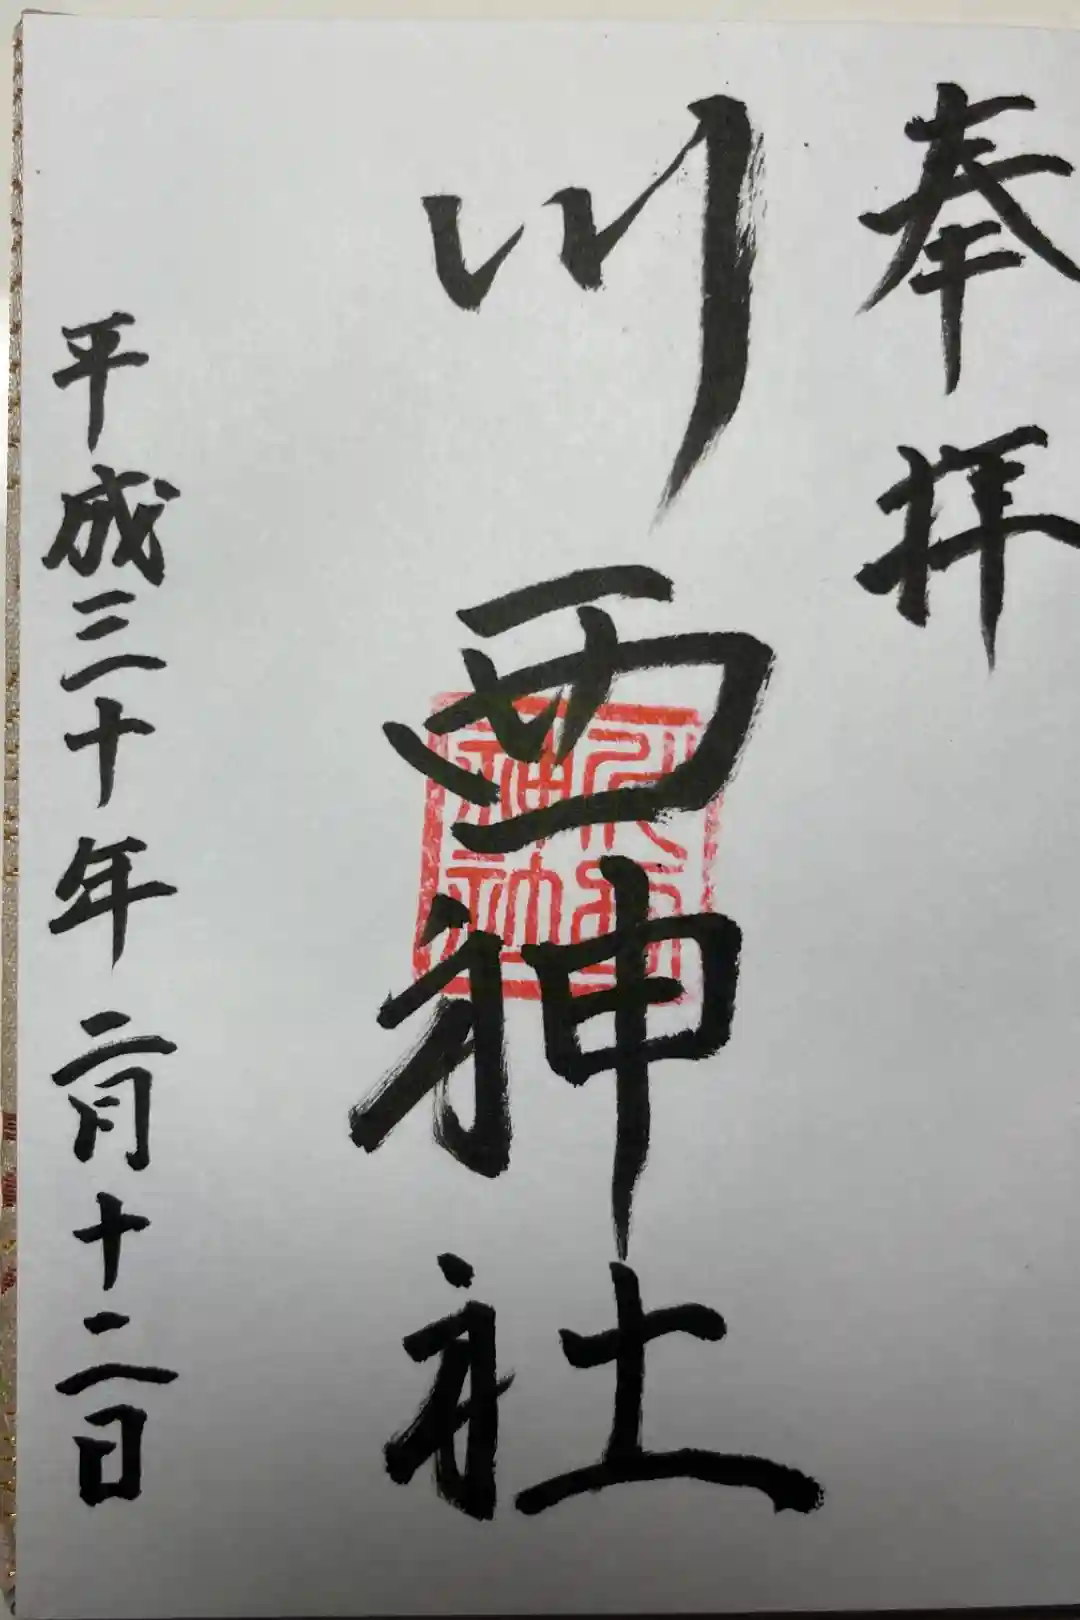 奉拝
川西神社
平成三十年二月十二日
川西神社